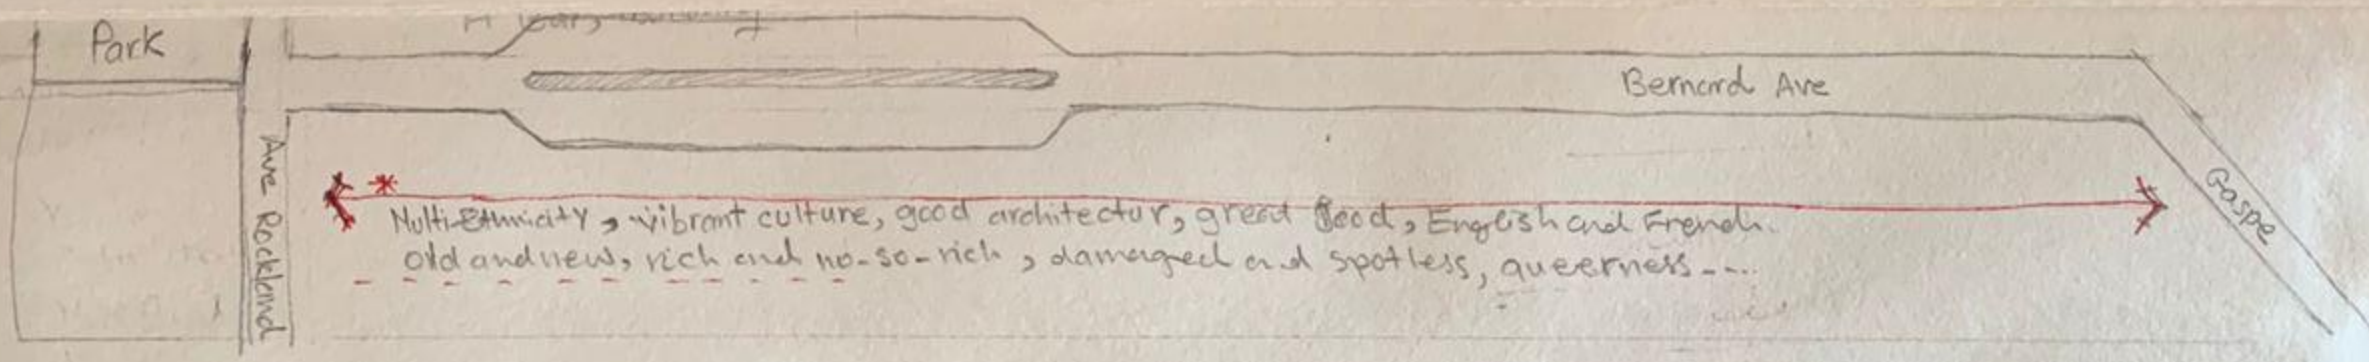 Park
Bernard Ave
Ave Rockland
Gaspe
* Multi-Ethnicity, vibrant culture, good architectur, great food, English and French.
old and new, rich and no-so-rich, damaged and spotless, queerness----